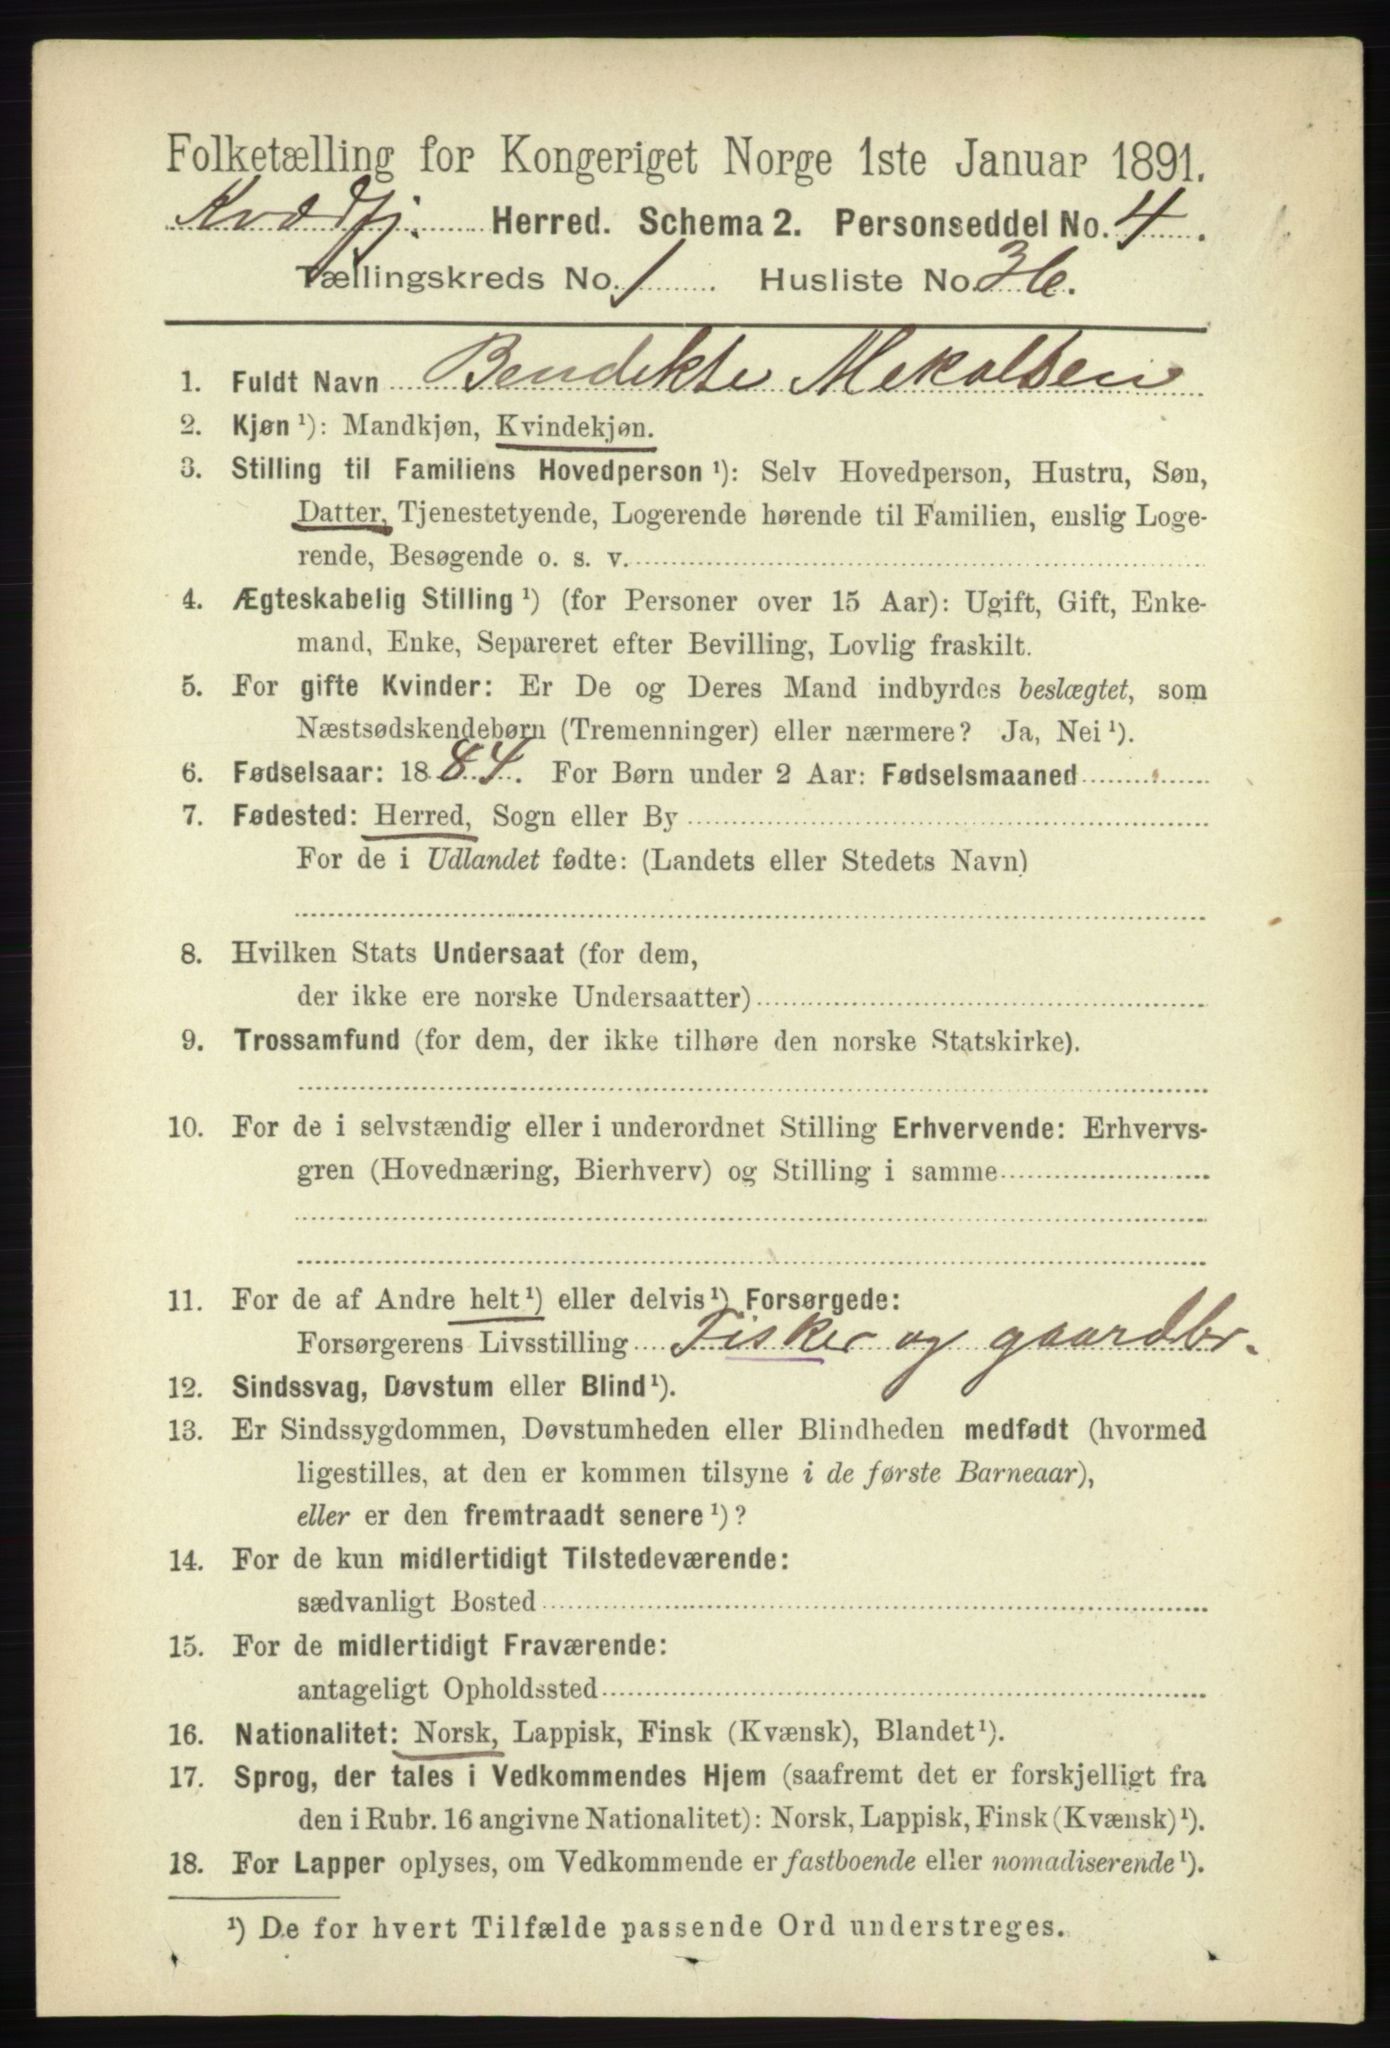 Folketælling for Kongeriget Norge 1ste Januar 1891.
Kvædfj. Herred. Schema 2. Personseddel No. 4.
Tællingskreds No. 1. Husliste No. 36.
1. Fuldt Navn Bendikte Mekalsen
2. Kjøn ¹): Mandkjøn, Kvindekjøn.
3. Stilling til Familiens Hovedperson ¹): Selv Hovedperson, Hustru, Søn,
Datter, Tjenestetyende, Logerende hørende til Familien, enslig Loge-
rende, Besøgende o. s. v.
4. Ægteskabelig Stilling ¹) (for Personer over 15 Aar): Ugift, Gift, Enke-
mand, Enke, Separeret efter Bevilling, Lovlig fraskilt.
5. For gifte Kvinder: Er De og Deres Mand indbyrdes beslægtet, som
Næstsødskendebørn (Tremenninger) eller nærmere? Ja, Nei ¹).
6. Fødselsaar: 1884. For Børn under 2 Aar: Fødselsmaaned
7. Fødested: Herred, Sogn eller By
For de i Udlandet fødte: (Landets eller Stedets Navn)
8. Hvilken Stats Undersaat (for dem,
der ikke ere norske Undersaatter)
9. Trossamfund (for dem, der ikke tilhøre den norske Statskirke).
10. For de i selvstændig eller i underordnet Stilling Erhvervende: Erhvervs-
gren (Hovednæring, Bierhverv) og Stilling i samme
11. For de af Andre helt ¹) eller delvis ¹) Forsørgede:
Forsørgerens Livsstilling Fisker og gaardbr.
12. Sindssvag, Døvstum eller Blind ¹).
13. Er Sindssygdommen, Døvstumheden eller Blindheden medfødt (hvormed
ligestilles, at den er kommen tilsyne i de første Barneaar),
eller er den fremtraadt senere ¹)?
14. For de kun midlertidigt Tilstedeværende:
sædvanligt Bosted
15. For de midlertidigt Fraværende:
antageligt Opholdssted
16. Nationalitet: Norsk, Lappisk, Finsk (Kvænsk), Blandet ¹).
17. Sprog, der tales i Vedkommendes Hjem (saafremt det er forskjelligt fra
den i Rubr. 16 angivne Nationalitet): Norsk, Lappisk, Finsk (Kvænsk) ¹).
18. For Lapper oplyses, om Vedkommende er fastboende eller nomadiserende ¹).
¹) De for hvert Tilfælde passende Ord understreges.